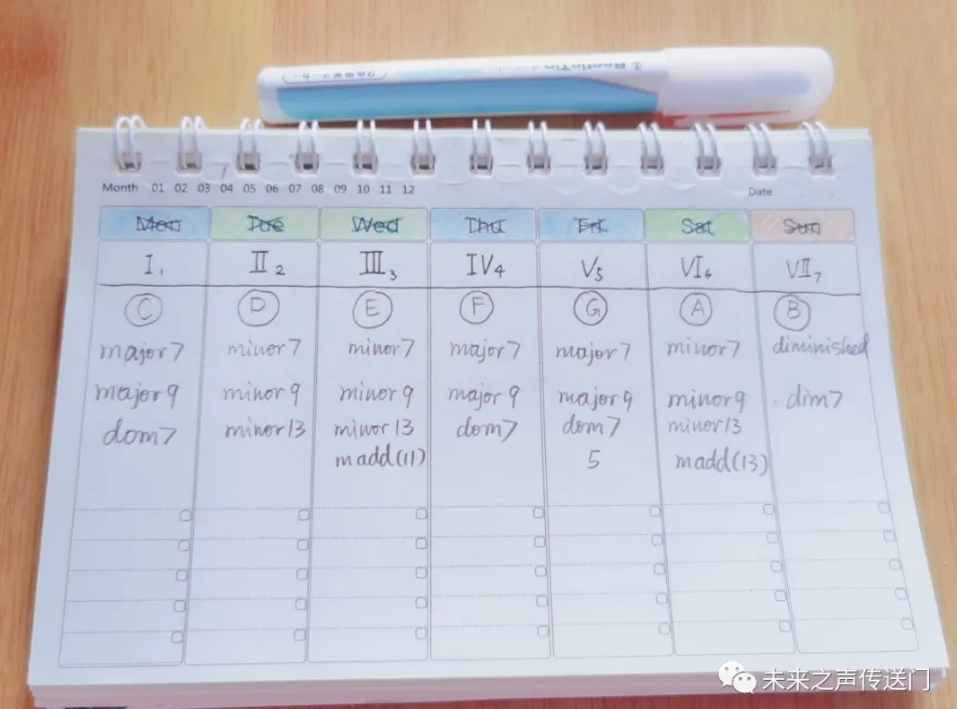 Month 01 02 03 04 05 06 07 08 09 10 11 12 Date
Mon Tue Wed Thu Fri Sat Sun
I₁ II₂ III₃ IV₄ V₅ VI₆ VII₇
C D E F G A B
major7 minor7 minor7 major7 major7 minor7 diminished
major9 minor9 minor9 major9 major9 minor9 dim7
dom7 minor13 minor13 dom7 dom7 minor13
madd(11) 5 madd(13)
未来之声传送门